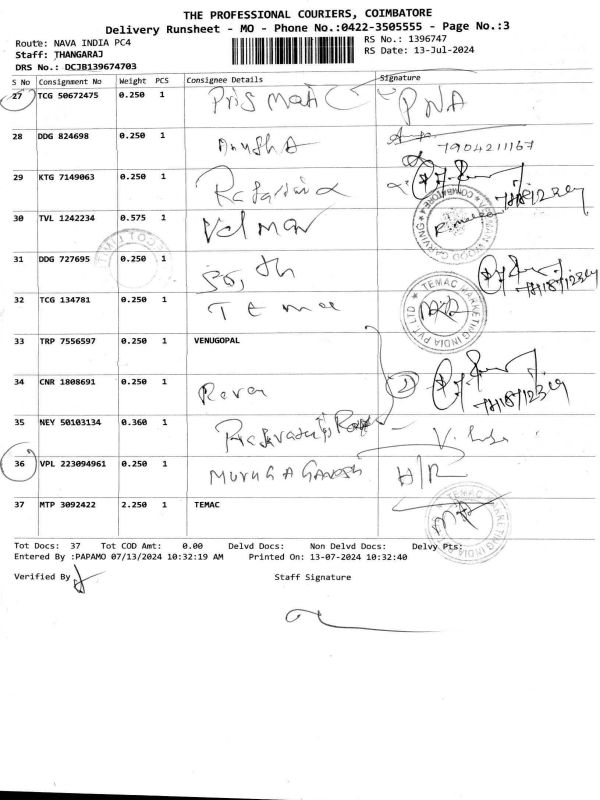 THE PROFESSIONAL COURIERS, COIMBATORE
Delivery Runsheet - MO - Phone No.:0422-3505555 - Page No.:3
Route: NAVA INDIA PC4 RS No.: 1396747
Staff: THANGARAJ RS Date: 13-Jul-2024
DRS No.: DCJB139674703
S No Consignment No Weight PCS Consignee Details Signature
27 TCG 50672475 0.250 1 PNA
28 DDG 824698 0.250 1 Anusha
7904211167
29 KTG 7149063 0.250 1
30 TVL 1242234 0.575 1 Velmar
31 DDG 727695 0.250 1
32 TCG 134781 0.250 1 Tema
TEMAC MARKETING INDIA PVT LTD
33 TRP 7556597 0.250 1 VENUGOPAL
34 CNR 1808691 0.250 1 2
35 NEY 50103134 0.360 1
36 VPL 223094961 0.250 1 MURUGA GANESH H/R
37 MTP 3092422 2.250 1 TEMAC
Tot Docs: 37 Tot COD Amt: 0.00 Delvd Docs: Non Delvd Docs: Delvy Pts:
Entered By :PAPAMO 07/13/2024 10:32:19 AM Printed On: 13-07-2024 10:32:40
Verified By Staff Signature